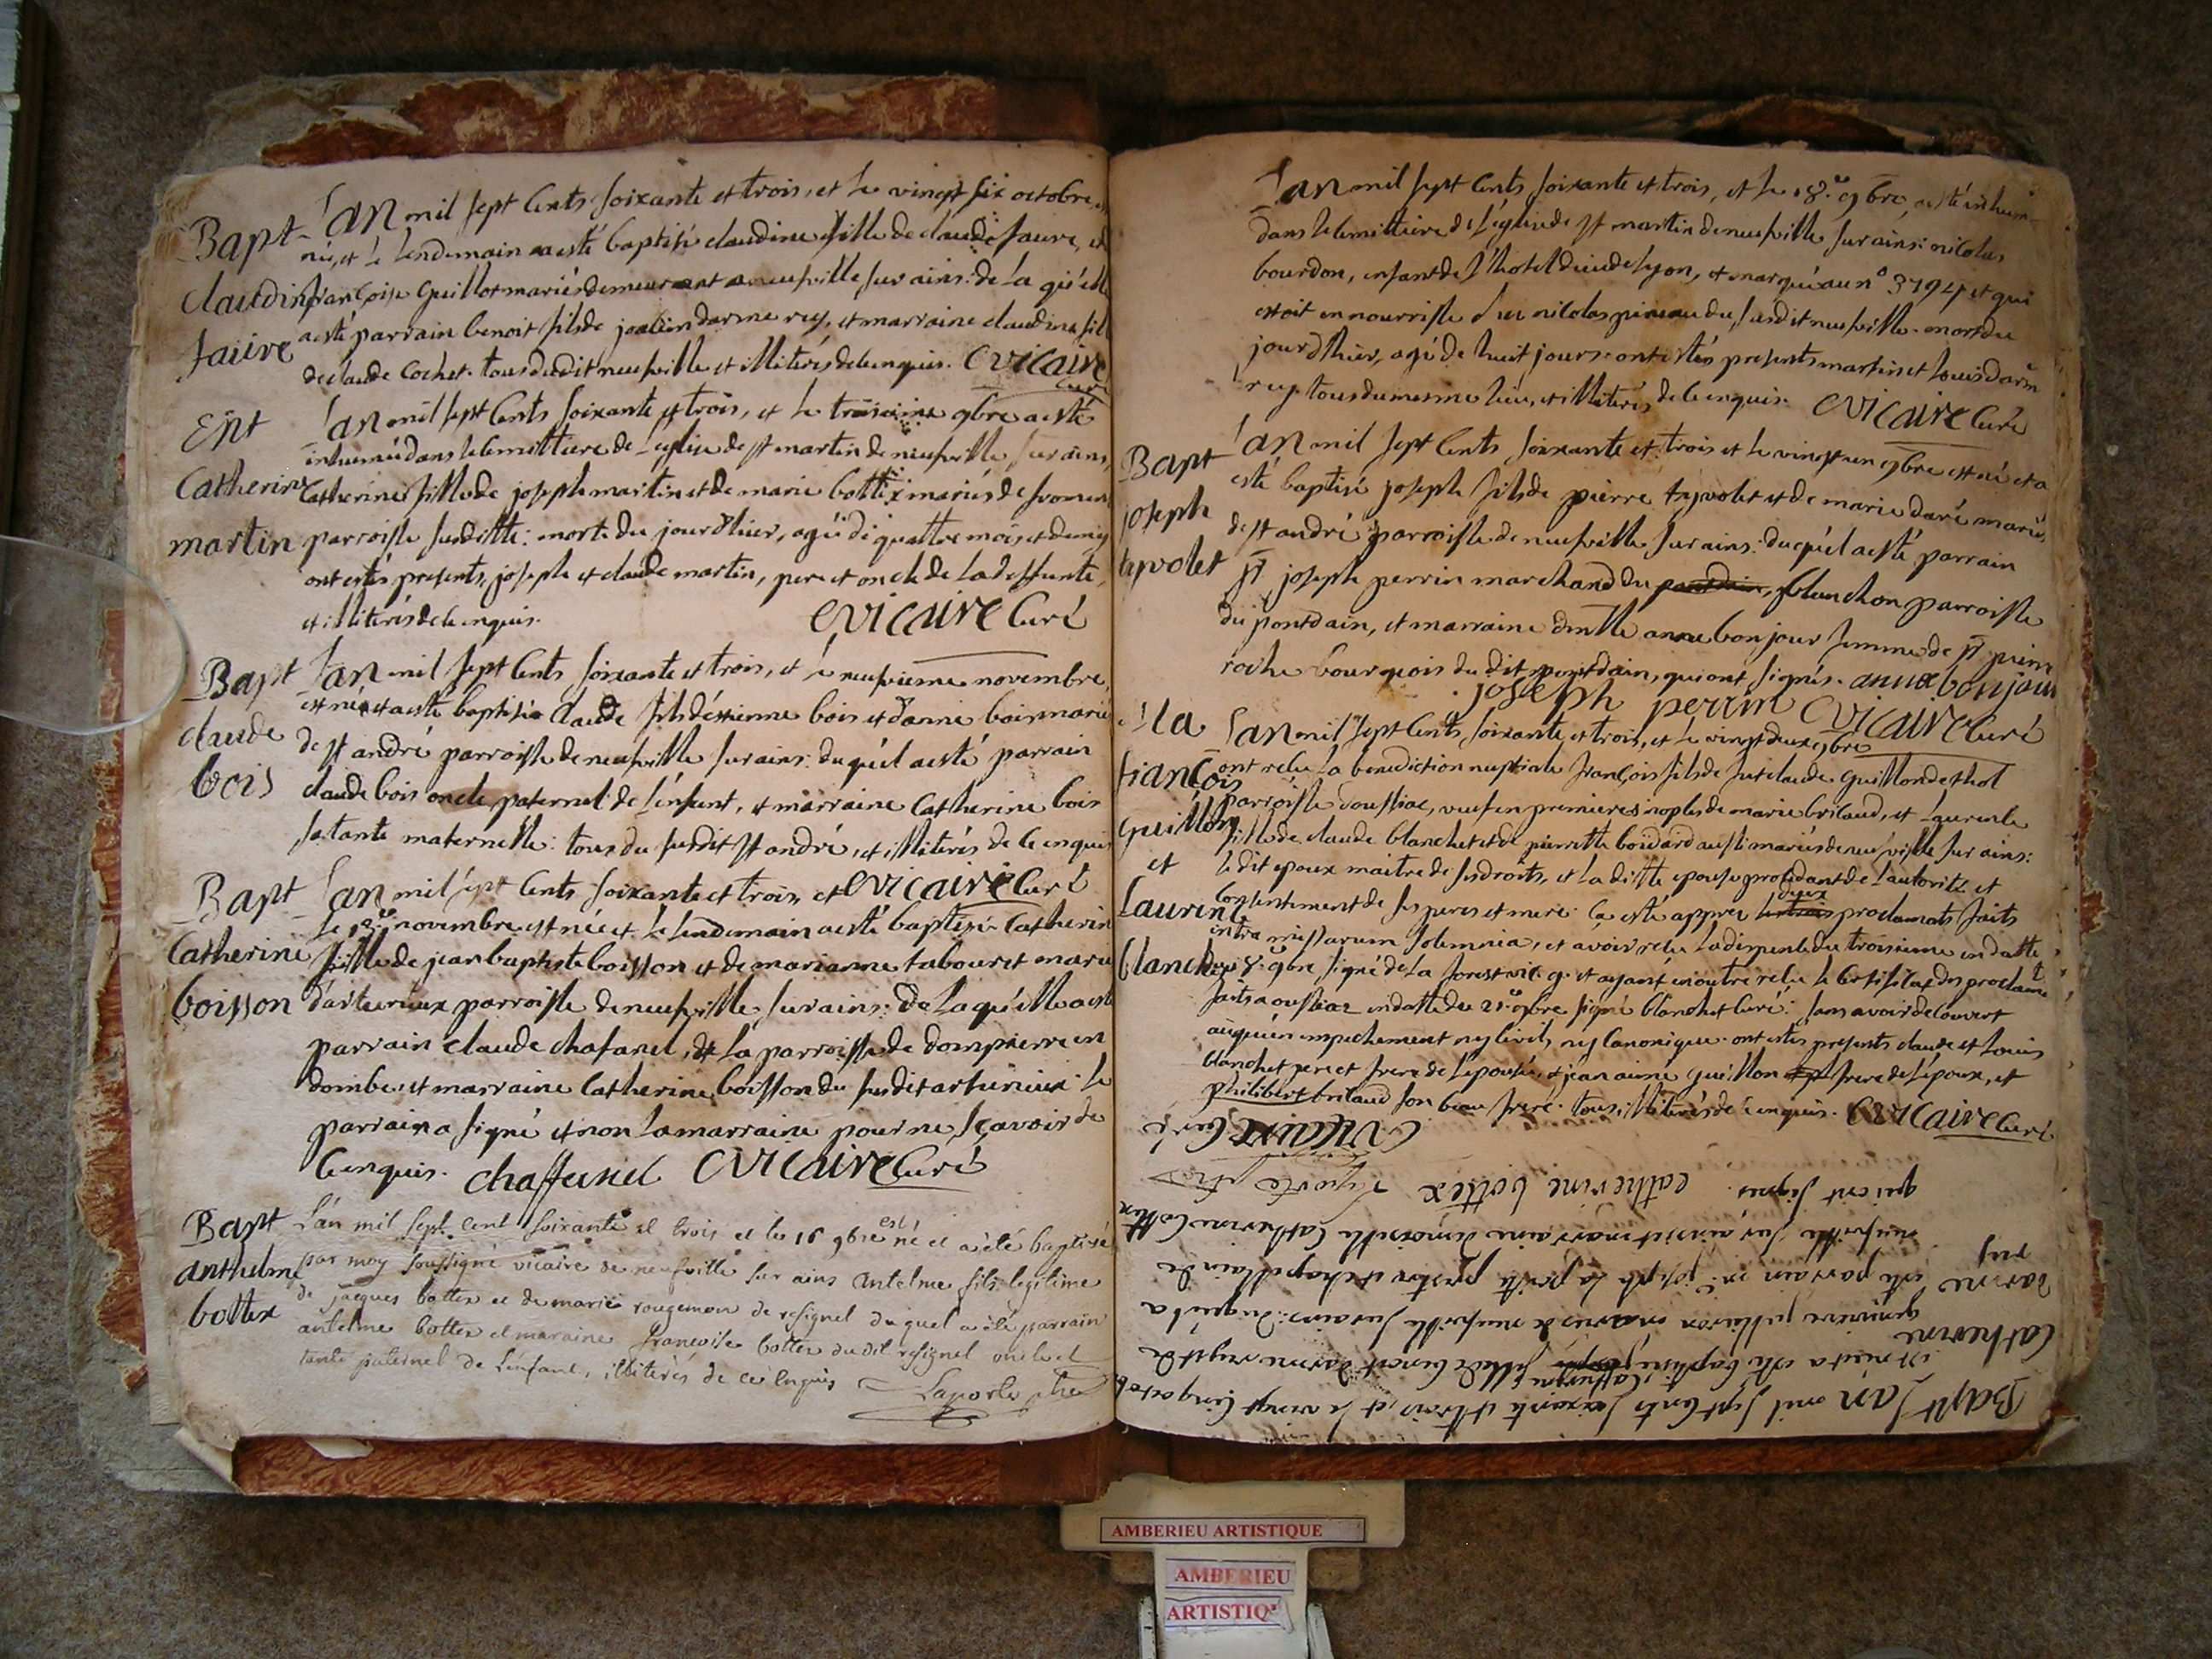 Bapt
claudine
faure
L'an mil sept Cents soixante et trois, et Le vingt six octobre est
née, et Le Lendemain a esté baptisée claudine fille de claude faure, et
françoise guillot mariés demeurant a neufville sur ains: de La quelle
a esté parrain benoit fils de joachim darme rey, et marraine claudine fille
de claude Cochet. tous du dit neufville et illiterés de Ce enquis. Evicaire
Curé
Ent
Catherine
martin
L'an mil sept Cents soixante et trois, et Le troisieme 9bre a esté
inhumée dans Le Cemittiere de Leglise de st martin de neufville sur ains,
Catherine fille de joseph martin et de marie bottex mariés de fromente
parroisse susditte: morte du jour d'hier, agée de quattre mois et demy
ont estés presents, joseph et claude martin, pere et oncle de La deffunte,
et illiterés de Ce enquis. Evicaire Curé
Bapt
claude
bois
L'an mil sept Cents soixante et trois, et Le neufvieme novembre,
est né et a esté baptisé claude fils d'estienne bois et d'anne bois mariés
de st andré parroisse de neufville sur ains: du quel a esté parrain
claude bois oncle paternel de L'enfant, et marraine Catherine bois
sa tante maternelle: tous du susdit st andré, et illiterés de Ce enquis
Evicaire Curé
Bapt
Catherine
boisson
L'an mil sept Cents soixante et trois, et
Le 12e novembre est née et Le Lendemain a esté baptisée Catherine
fille de jean baptiste boisson et de marianne tabouret mariés
d'arturieux parroisse de neufville sur ains: de La quelle a esté
parrain claude chafanel, de La parroisse de dompierre en
dombe: et marraine Catherine boisson du susdit arturieux: Le
parrain a signé et non La marraine pour ne sçavoir de
Ce enquis. chaffanel Evicaire Curé
Bapt
anthelme
bottex
L'an mil sept cent soixante et trois et le 16 9bre est né et a été baptisé
par moy soussigné vicaire de neufville sur ains antelme fils legitime
de jacques bottex et de marie rougemon de resignel du quel a été parrain
antelme bottex et maraine francoise bottex du dit resignel oncle et
tante paternel de L'enfant, illiterés de ce enquis Laporte ptre
L'an mil sept Cents soixante et trois, et Le 18e 9bre, a esté inhumé
dans Le Cemittiere de L'église de st martin de neufville sur ains: nicolas
bourdon, enfant de L'hotel dieu de Lyon, et marqué au n° 3194 et qui
estoit en nourrisse chez nicolas pineau du susdit neufville. mort du
jour d'hier, agé de huit jours: ont estés presents martin et Louis darme
rey tous du mesme Lieu, et illiterés de Ce enquis. Evicaire Curé
Bapt
joseph
tyvolet
L'an mil sept Cents soixante et trois et Le vingt un 9bre est né et a
esté baptisé joseph fils de pierre tyvolet et de marie daré mariés
de st andré parroisse de neufville sur ains: du quel a esté parrain
sr joseph perrin marchand du pontdain, blanchon parroisse
du pontdain, et marraine dmlle anne bonjour femme de sr pierre
roche bourgeois du dit pontdain, qui ont signés. anne bonjour
joseph perrin Evicaire Curé
françois
guillon
et
Laurence
blanchet
L'an mil sept Cents soixante et trois, et Le vingt deux 9bre
ont reçu La benediction nuptiale françois fils de fut claude guillon de thol
parroisse doussiac, veuf en premieres noples de marie brilaud, et Laurence
fille de claude blanchet et de pierrette boidard aussi mariés de neufville sur ains:
Ledit epoux maitre de ses droits, et La ditte epouse procedant de L'autorité et
Consentement de ses peres et mere: Ce esté apprez deux proclamats faits
intra missarum solemnia, et avoir reçu La dispense du troisieme en datte
du 18e 9bre signé de La forest vic. g. et ayant en outre reçu Le Certificat des proclamats
faits a oussiaz en datte du 21e 9bre signé blanchet Curé: sans avoir decouvert
auqu'un empechement ny Civil, ny Canonique. ont estés presents claude et Louis
blanchet pere et frere de L'épousée, et jean aimé guillon frere de L'époux, et
philibert brilaud son beau frere. tous illiterés de Ce enquis. Evicaire Curé
Bapt
Catherine
darme
rey
L'an mil sept Cents soixante et trois, et Le vingt Cinq octobre
est née et a esté baptisée Catherine fille de benoit darme rey et de
genevieve jullieron mariés de neufville sur ains: du quel a
esté parrain mr joseph La porte prestre et chapellain de
neufville sur ains et marraine demoiselle Catherine bottex
qui ont signés. catherine bottex Laporte ptre
Evicaire Curé
AMBERIEU ARTISTIQUE
AMBERIEU
ARTISTIQ